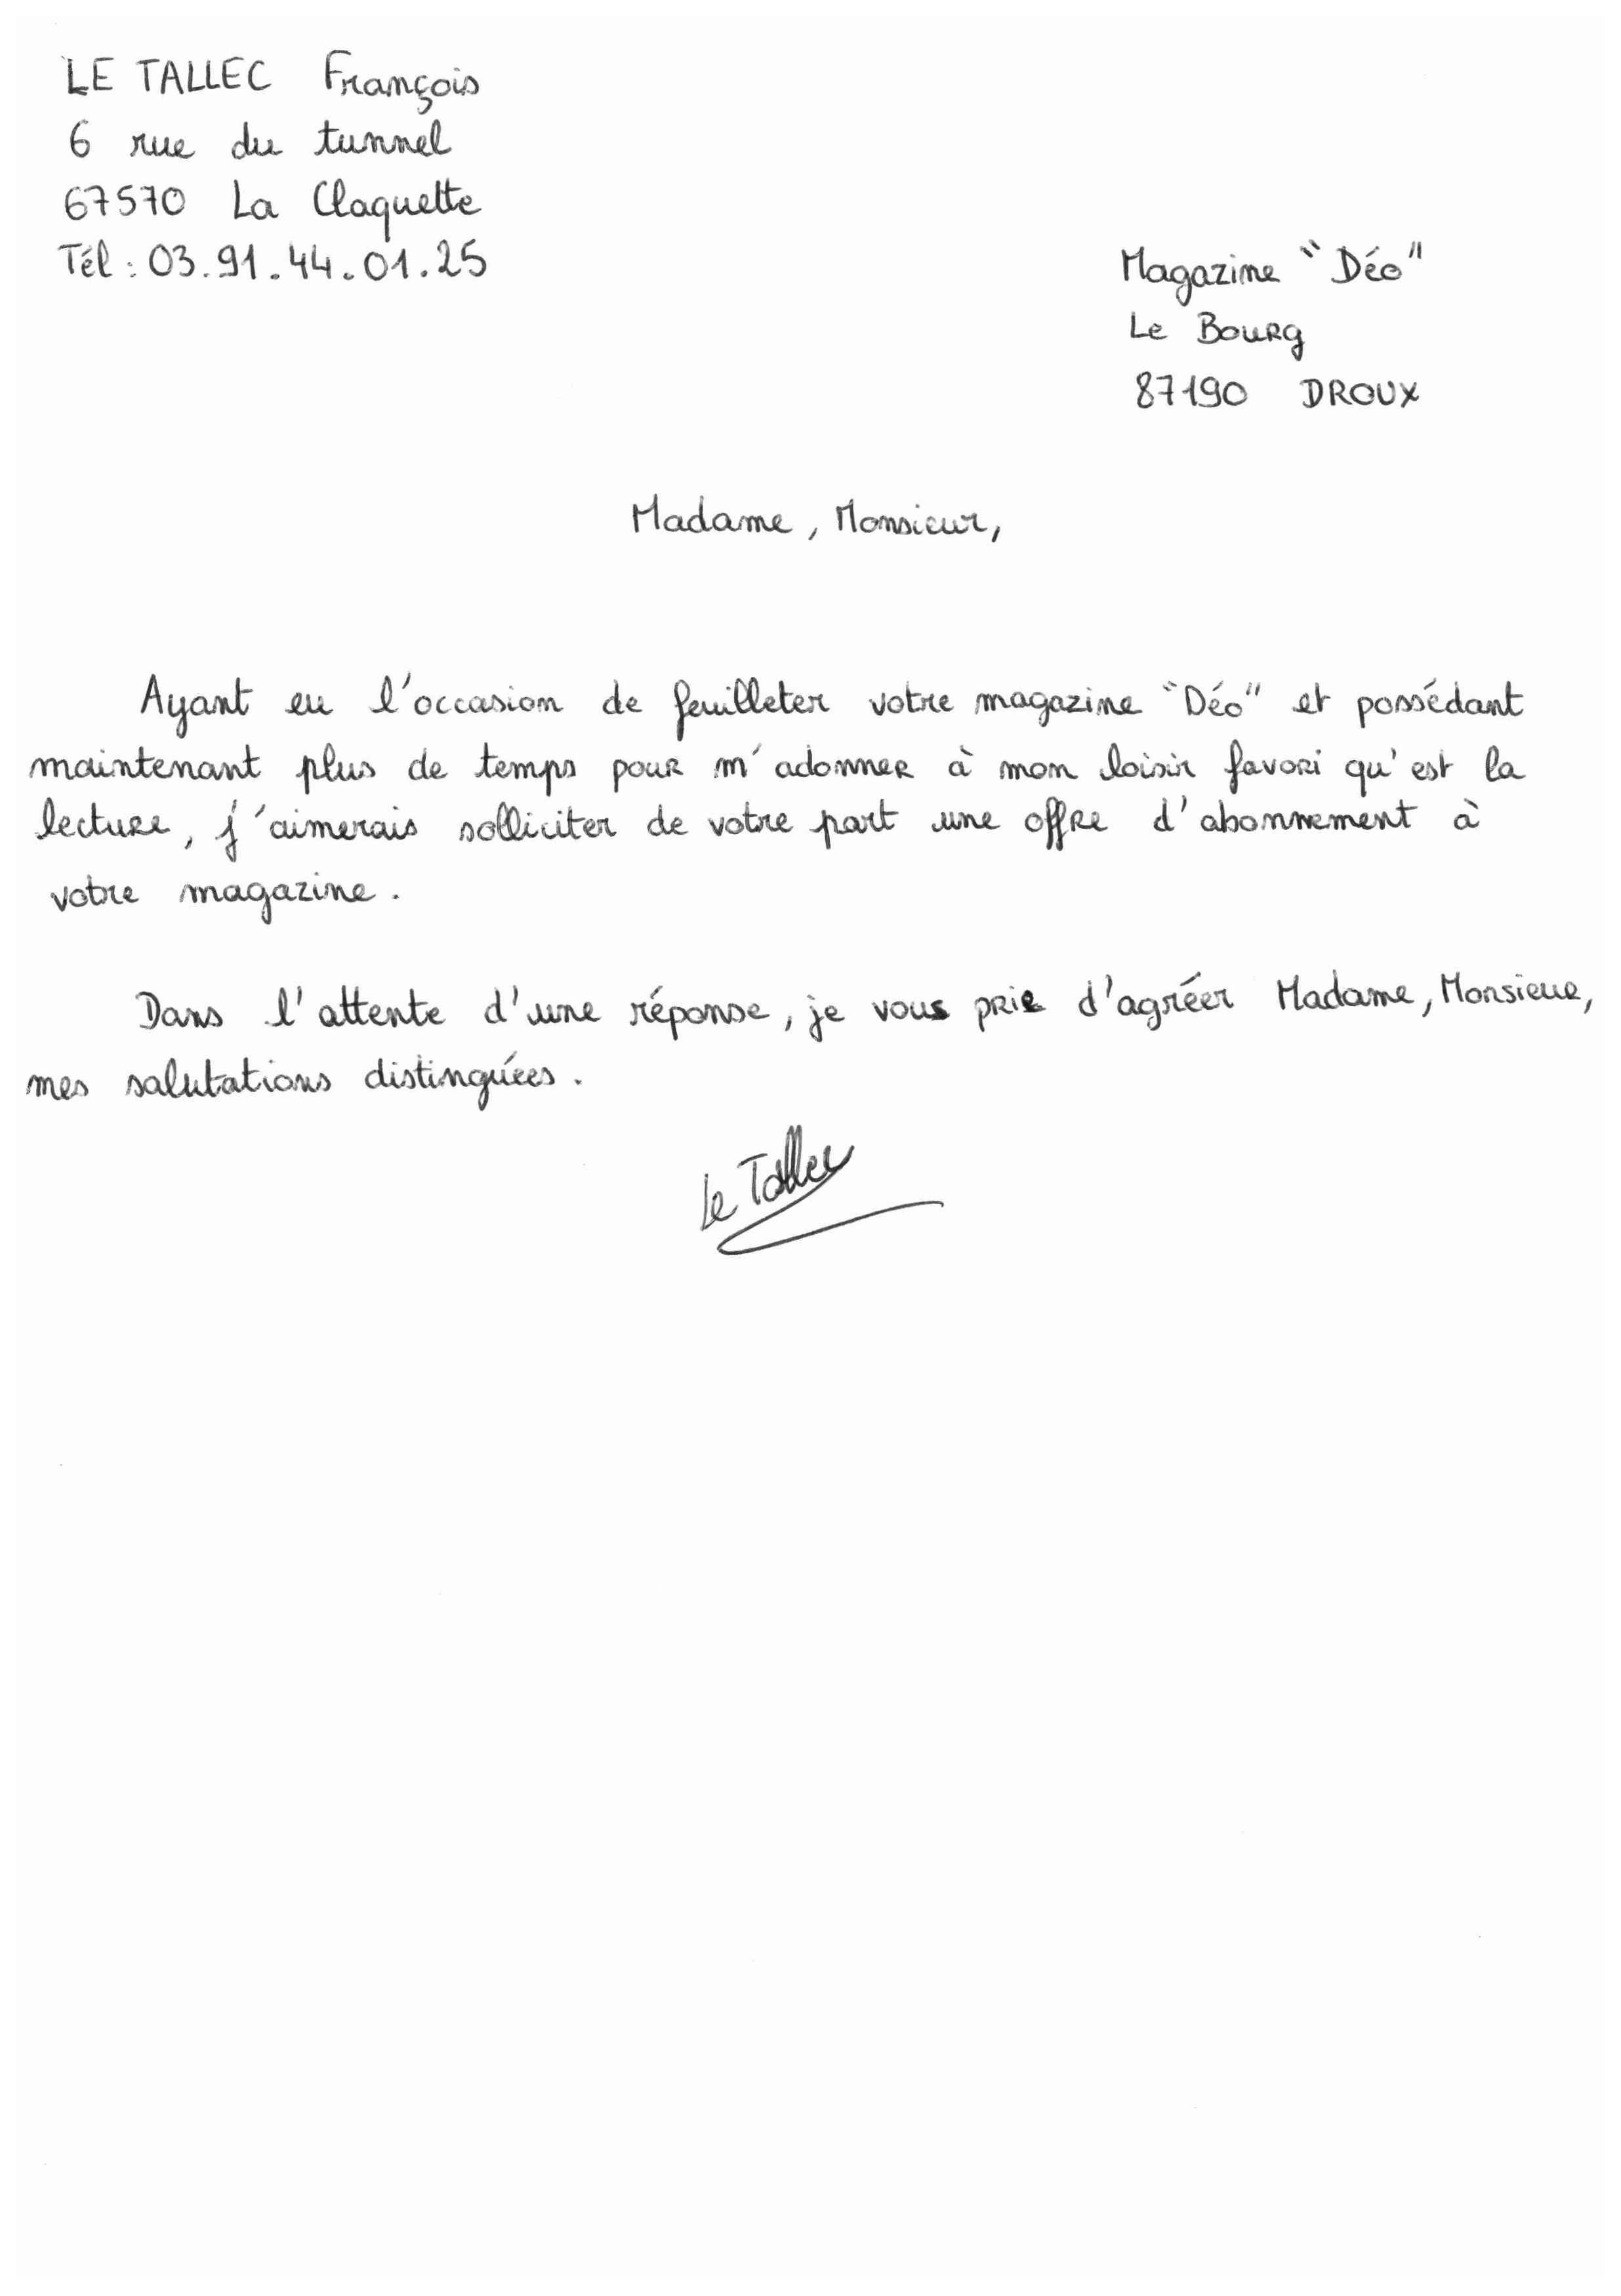 LE TALLEC François
6 rue du tunnel
67570 La Claquette
Tél : 03.91.44.01.25
Magazine "Déo"
Le Bourg
87190 DROUX
Madame, Monsieur,
Ayant eu l'occasion de feuilleter votre magazine "Déo" et possédant
maintenant plus de temps pour m'adonner à mon loisir favori qu'est la
lecture, j'aimerais solliciter de votre part une offre d'abonnement à
votre magazine.
Dans l'attente d'une réponse, je vous prie d'agréer Madame, Monsieur,
mes salutations distinguées.
Le Tallec